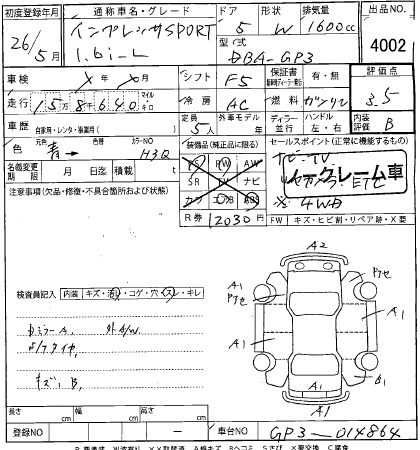 初度登録年月 通称車名・グレード ドア 形状 排気量 出品NO
26年 5月 インプレッサSPORT 1.6i-L 5 W 1600cc 4002
型式 DBA-GP3
車検 X年 X月 シフト F5 保証書 有・無 燃料 ガソリン 評価点 3.5
走行 15万8千640 マイル キロ 冷房 AC
車歴 自家用・レンタ・事業用( ) 定員 5人 外車モデル ディーラー 並行 ハンドル 左・右 内装評価 B
色 元色 青→ 色替 カラーNO H3Q
装備品(純正品に限る) セールスポイント(正常に機能するもの)
PS PW AW
SR ナビ
カワ ABS
ナビ・TV
ETC
※4WD
クレーム車
名義変更期限 月 日迄 積載 t
注意事項(欠品・修復・不具合箇所および状態)
R券 12030円 FW キズ・ヒビ割・リペア跡・X要
検査員記入 内装 キズ・汚レ・コゲ・穴・スレ・キレ
A2
A1
A1
A1
A1
A1
B1
キズ、B、
長さ cm 幅 cm 高さ cm
登録NO 車台NO GP3-014864